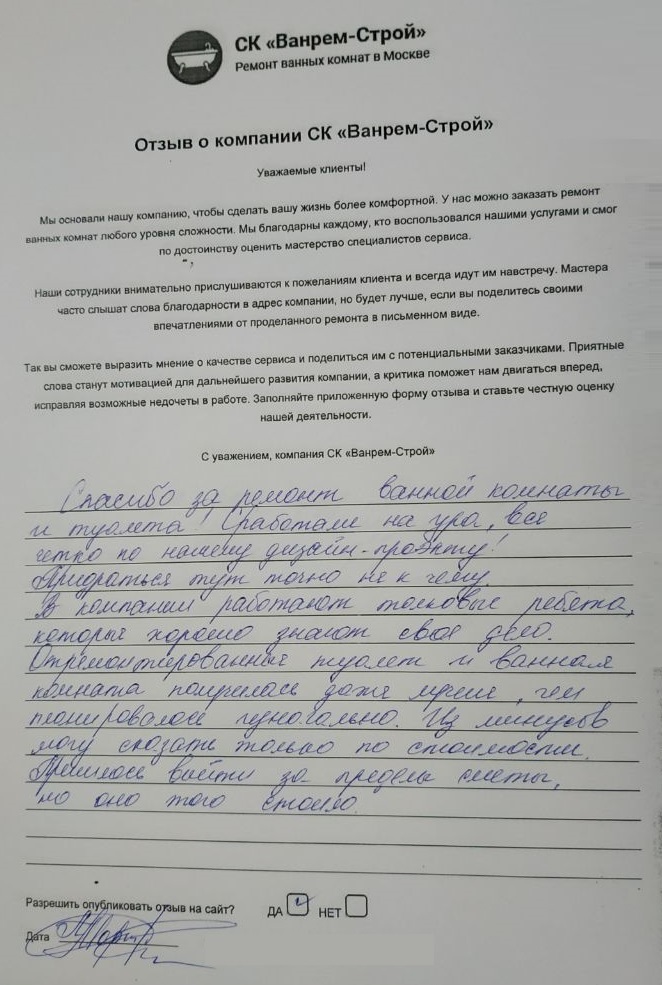 СК «Ванрем-Строй»
Ремонт ванных комнат в Москве
Отзыв о компании СК «Ванрем-Строй»
Уважаемые клиенты!
Мы основали нашу компанию, чтобы сделать вашу жизнь более комфортной. У нас можно заказать ремонт
ванных комнат любого уровня сложности. Мы благодарны каждому, кто воспользовался нашими услугами и смог
по достоинству оценить мастерство специалистов сервиса.
Наши сотрудники внимательно прислушиваются к пожеланиям клиента и всегда идут им навстречу. Мастера
часто слышат слова благодарности в адрес компании, но будет лучше, если вы поделитесь своими
впечатлениями от проделанного ремонта в письменном виде.
Так вы сможете выразить мнение о качестве сервиса и поделиться им с потенциальными заказчиками. Приятные
слова станут мотивацией для дальнейшего развития компании, а критика поможет нам двигаться вперед,
исправляя возможные недочеты в работе. Заполняйте приложенную форму отзыва и ставьте честную оценку
нашей деятельности.
С уважением, компания СК «Ванрем-Строй»
Спасибо за ремонт ванной комнаты
и туалета! Сработали на ура, все
четко по нашему дизайн-проэкту!
Придраться тут точно не к чему.
В компании работают толковые ребята,
которые хорошо знают свое дело.
Отремонтированный туалет и ванная
комната получилась даже лучше, чем
планировалось изначально. Из минусов
могу сказать только по стоимости.
Пришлось выйти за пределы сметы,
но оно того стоило.
Разрешить опубликовать отзыв на сайт? ДА НЕТ
Дата